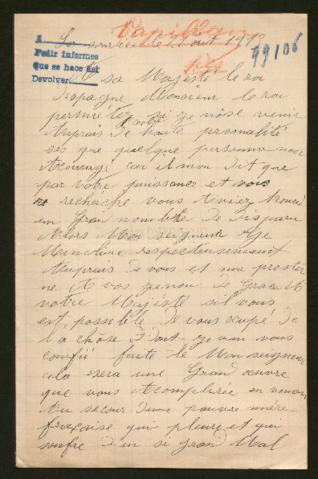 Papillau
Pedir informes
que se hace así
Devolver
99106
La 1919
A sa Majesté le roi
despagne Monsieur le roi
permetez moi si je nose venir
Aupres de votre haute personalité
ses que quelque personne mon
Acourage car il mon dit que
par votre puissance et vous
recherche vous Aviez trouve
un Gran nombre de disparu
Alors Mon seigneur Je
Mincline respectueusement
Aupraus de vous et me proster
ne A vos genou de Grace A
votre Majesté sil vous
est possible de vous ocupé de
la chose dont je vien vous
confié faite le Mon seigneur
cela sera une Grand œuvre
que vous Acomplirie en venan
Au secour dune pauvre mère
française qui pleure et qui
soufre d'un si grand Mal